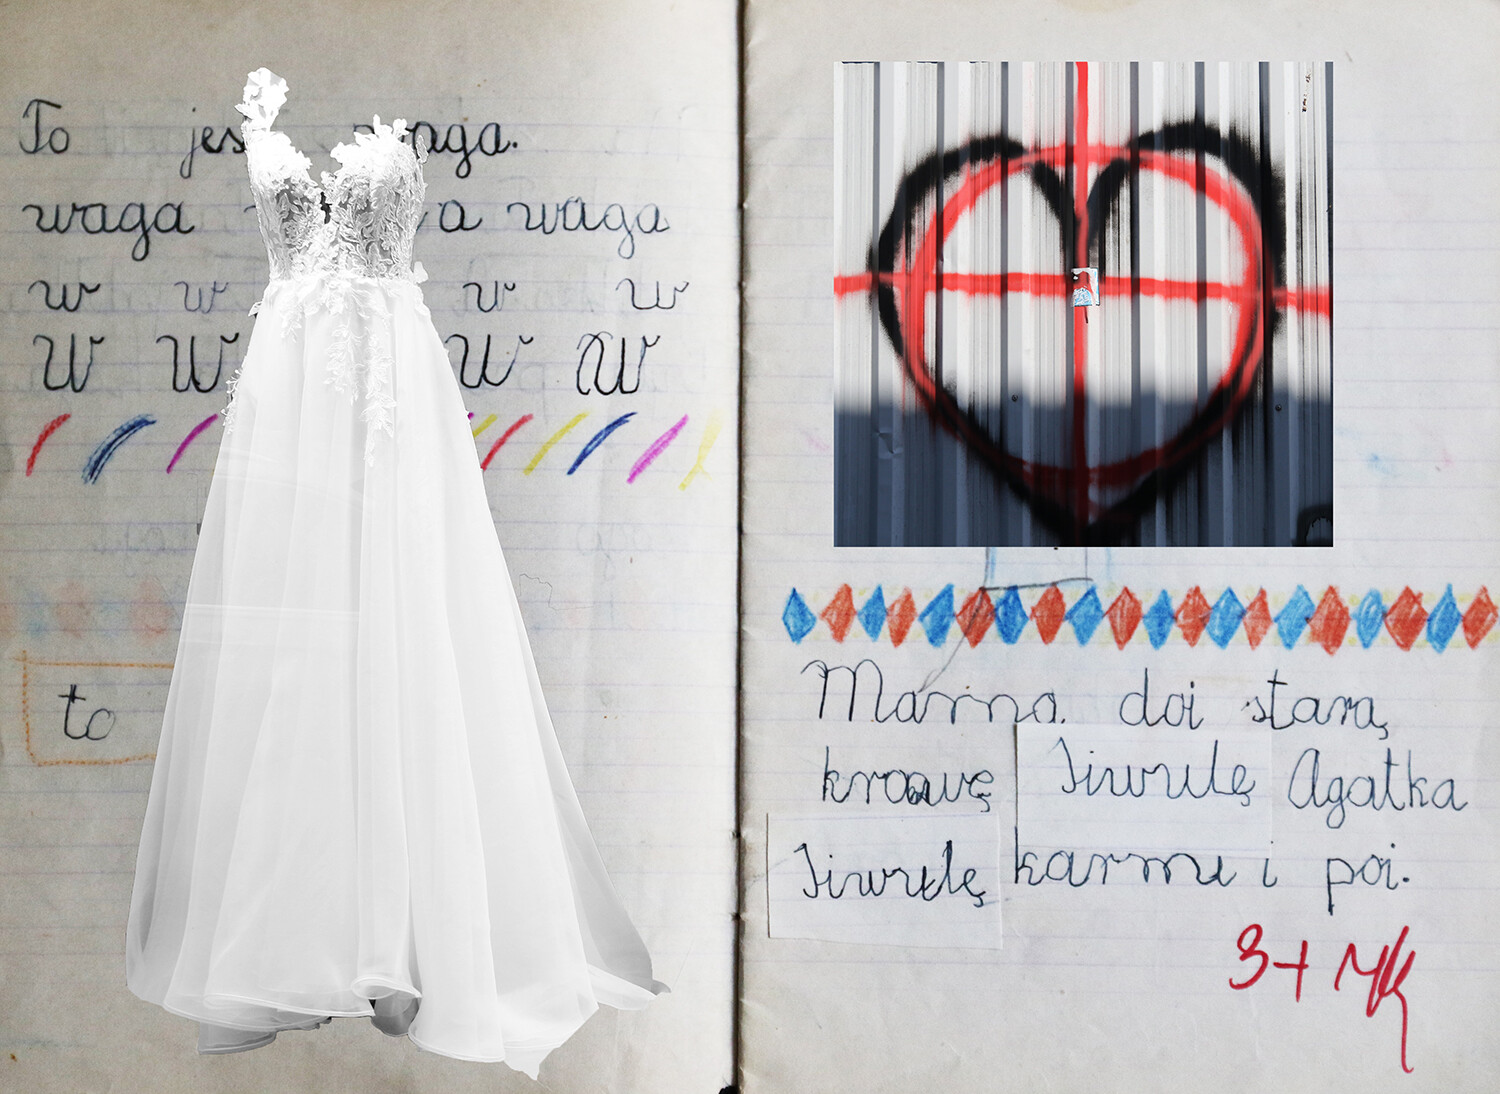 To jes waga.
waga a waga
w w w w
W W W W
to
Mama doi starą
krowę Siwulę Agatka
Siwulę karmi i poi.
3+